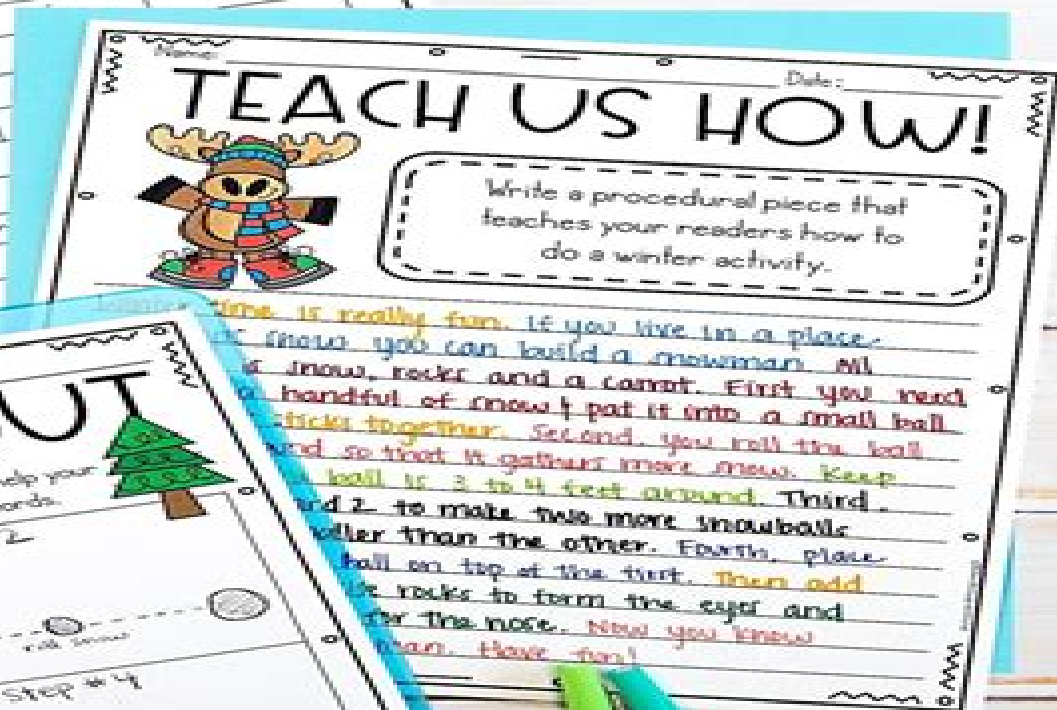 Name: Date:
TEACH US HOW!
Write a procedural piece that
teaches your readers how to
do a winter activity.
time is really fun. If you live in a place
snow you can build a snowman
snow, rocks and a carrot. First you need
handful of snow & pat it into a small ball
sticks together. Second, you roll the ball
so that it gathers more snow. Keep
ball is 3 to 4 feet around. Third,
2 to make two more snowballs
than the other. Fourth, place
ball on top of the first. Then add
rocks to form the eyes and
for the nose. Now you know
Have fun!
help your
2
roll snow
Step #4